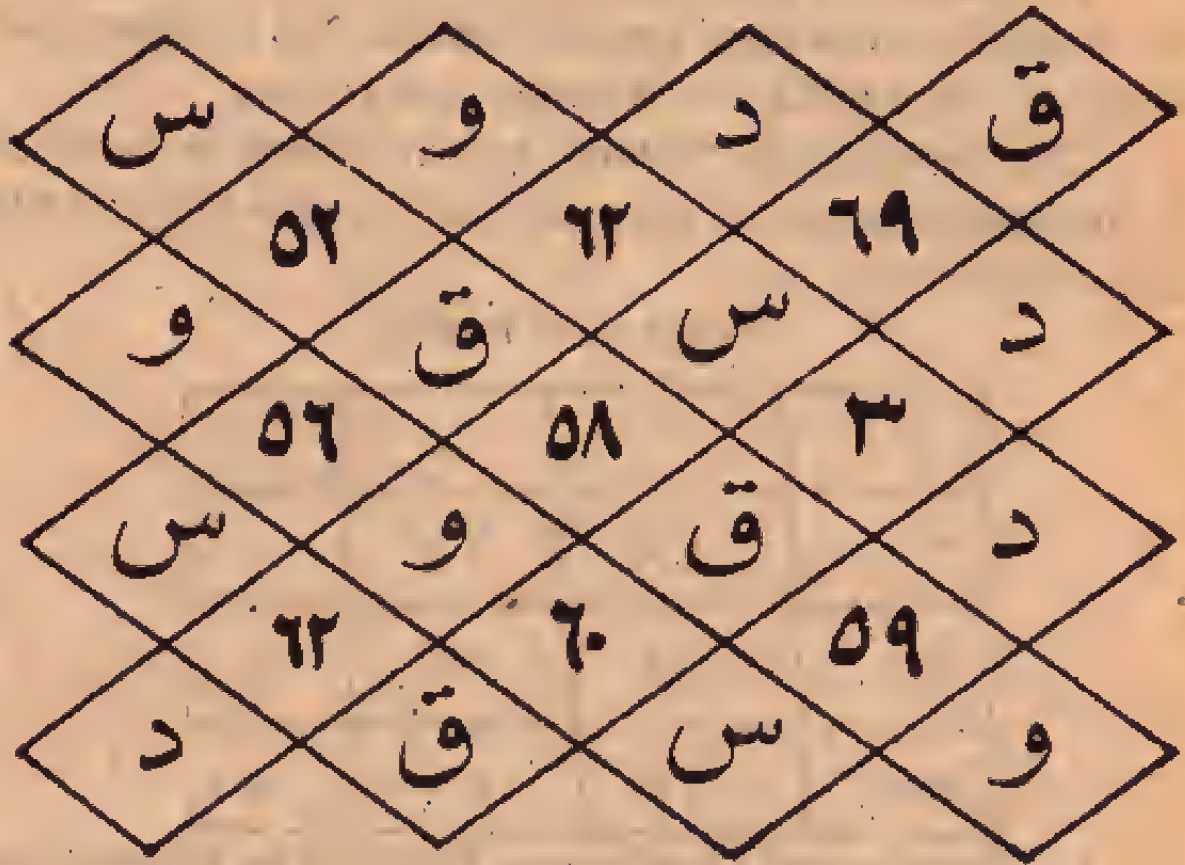 ق د و س
٦٩ ٦٢ ٥٢
د س ق و
٣ ٥٨ ٥٦
د ق و س
٥٩ ٦٠ ٦٢
و س ق د